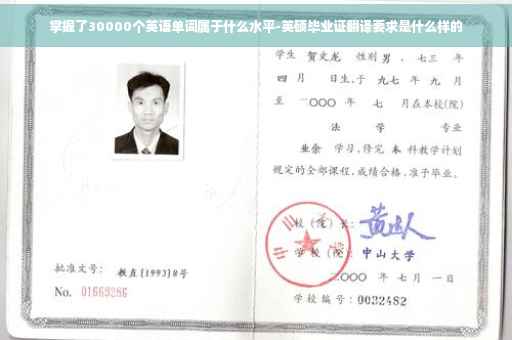 掌握了30000个英语单词属于什么水平-英硕毕业证翻译要求是什么样的
学生 贺文龙 性别 男 、七三 年
四 月 日生,于 九七 年 九 月
至 二〇〇〇 年 七 月在本校(院)
法 学 专业
业余 学习,修完 本 科教学计划
规定的全部课程,成绩合格,准予毕业。
校(院)长:
学校(院): 中山大学
二〇〇〇 年 七 月 一 日
学校编号: 0032482
批准文号: 教直[1993]8号
No. 01669286